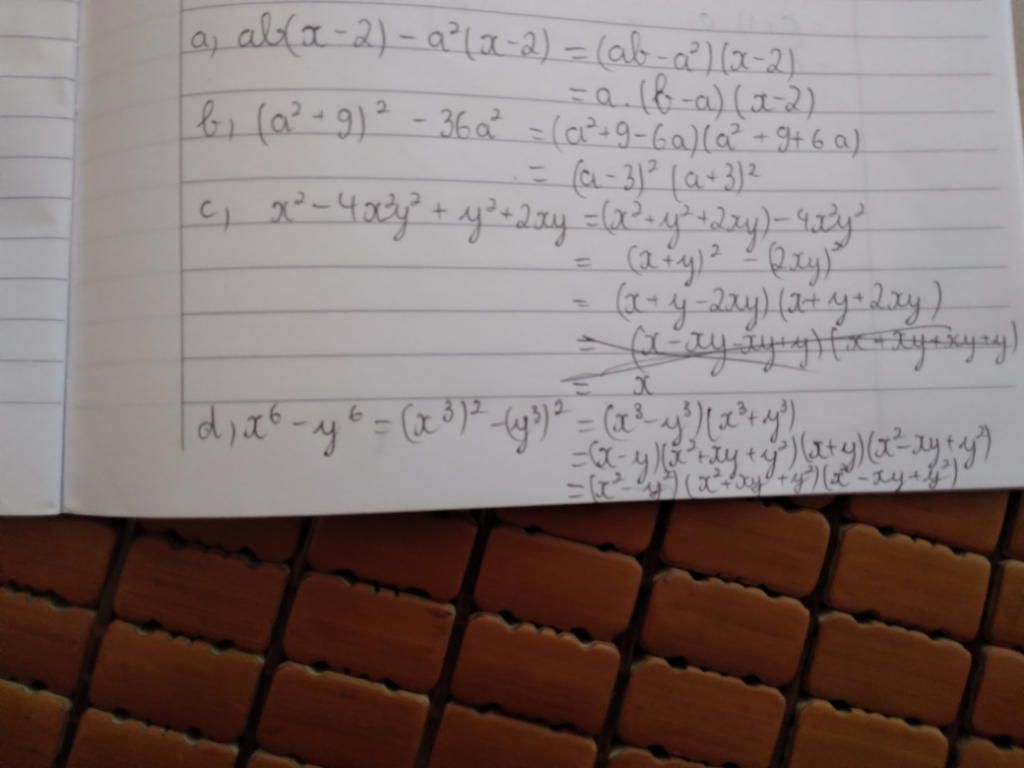 a, ab(x-2) - a²(x-2) = (ab - a²)(x-2)
= a.(b-a)(x-2)
b, (a²+9)² - 36a² = (a²+9-6a)(a²+9+6a)
= (a-3)² (a+3)²
c, x² - 4x²y² + y² + 2xy = (x²+y²+2xy) - 4x²y²
= (x+y)² - (2xy)²
= (x+y-2xy)(x+y+2xy)
= (x-xy-xy+y)(x+xy+xy+y)
= x
d, x⁶ - y⁶ = (x³)² - (y³)² = (x³-y³)(x³+y³)
= (x-y)(x²+xy+y²)(x+y)(x²-xy+y²)
= (x²-y²)(x²+xy+y²)(x²-xy+y²)